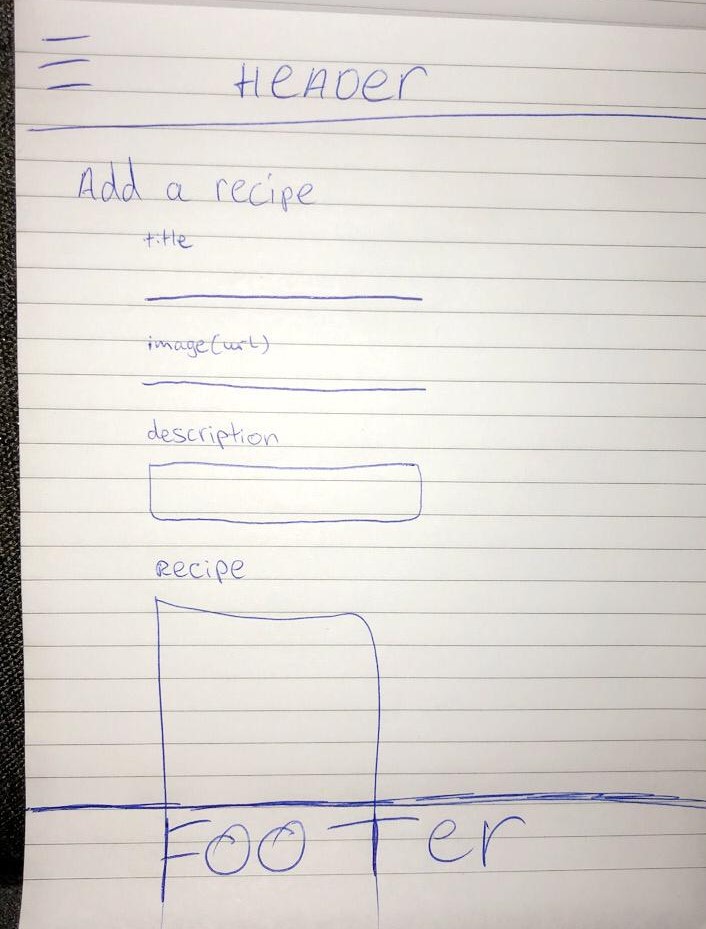 HEADER
Add a recipe
title
image(url)
description
Recipe
FOOTer